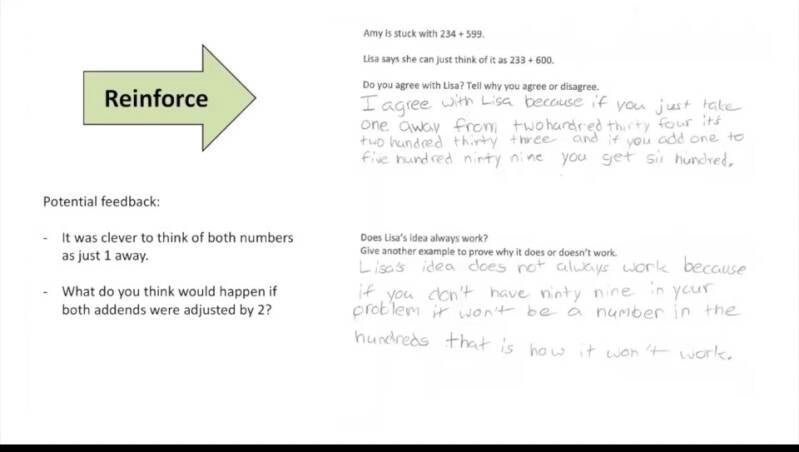 Reinforce
Potential feedback:
- It was clever to think of both numbers
as just 1 away.
- What do you think would happen if
both addends were adjusted by 2?
Amy is stuck with 234 + 599.
Lisa says she can just think of it as 233 + 600.
Do you agree with Lisa? Tell why you agree or disagree.
I agree with Lisa because if you just take
one away from twohundred thirty four its
two hundred thirty three and if you add one to
five hundred ninty nine you get sii hundred.
Does Lisa's idea always work?
Give another example to prove why it does or doesn't work.
Lisa's idea does not always work because
if you don't have ninty nine in your
problem it won't be a number in the
hundreds that is how it won't work.